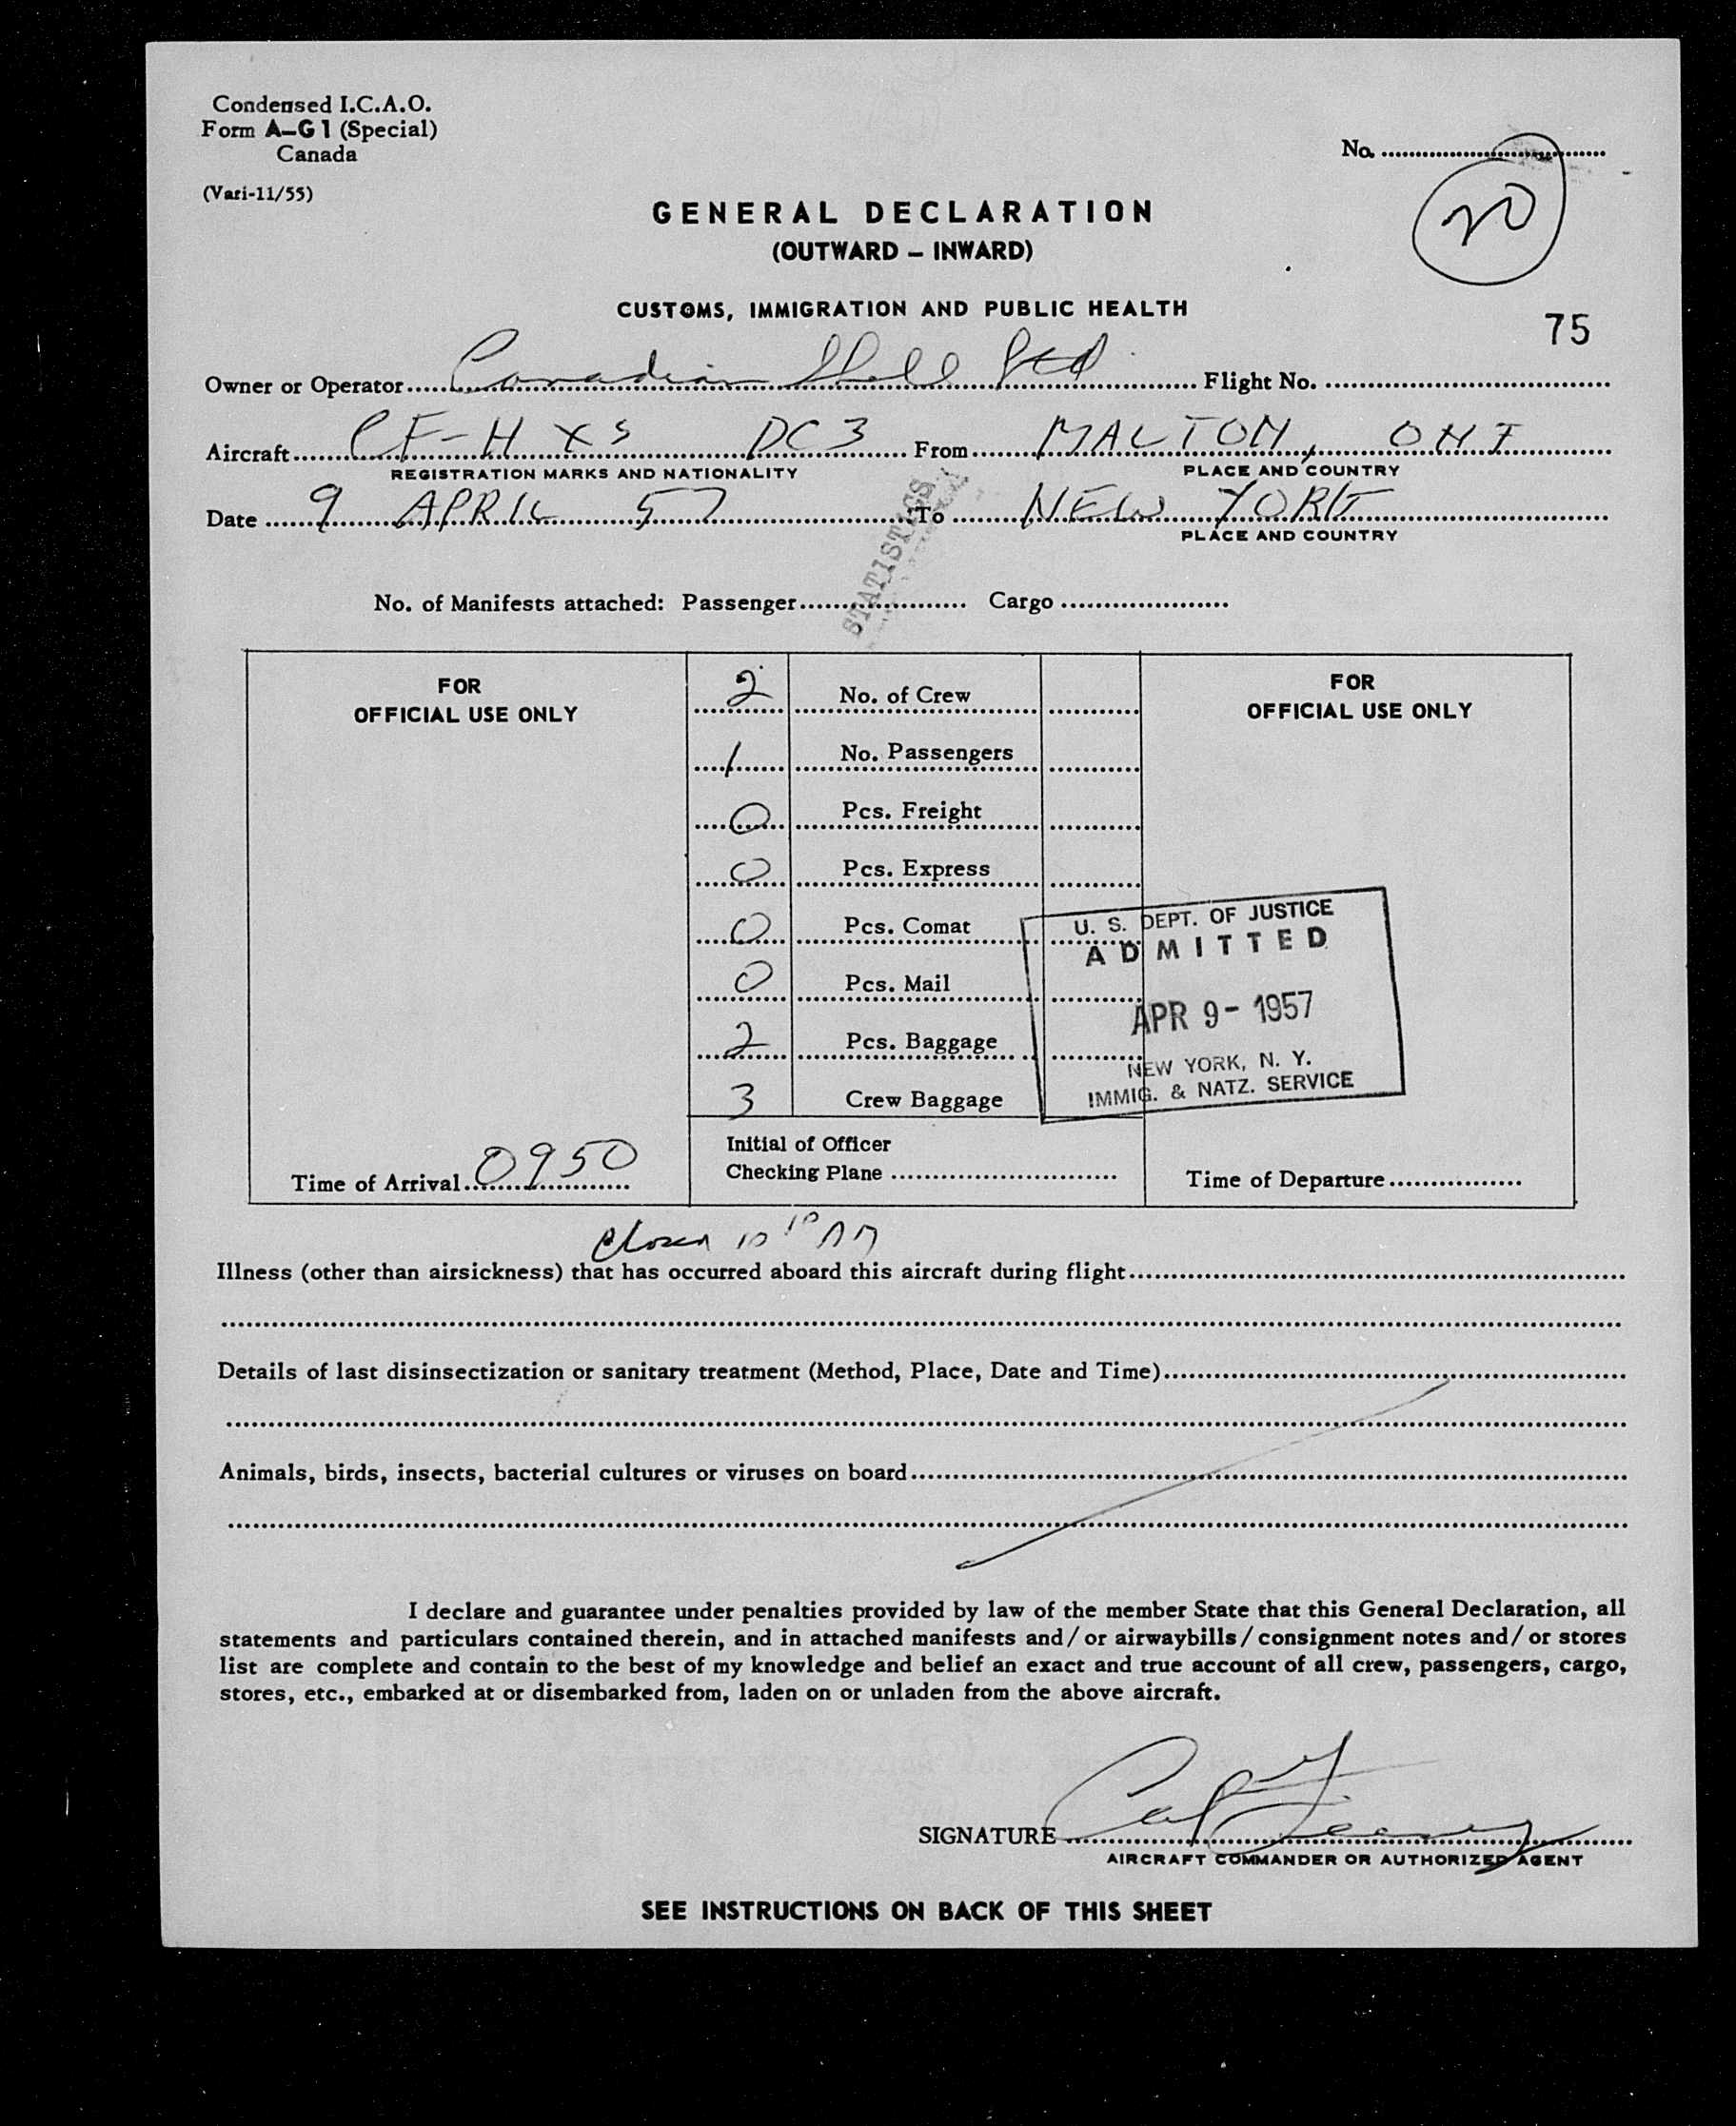 Condensed I.C.A.O.
Form A-G1 (Special)
Canada
(Vari-11/55)
No.
20
GENERAL DECLARATION
(OUTWARD – INWARD)
CUSTOMS, IMMIGRATION AND PUBLIC HEALTH
75
Owner or Operator Canadian Shell Ltd Flight No.
Aircraft CF-HXS DC3 From MALTON, ONT
REGISTRATION MARKS AND NATIONALITY PLACE AND COUNTRY
Date 9 APRIL 57 To NEW YORK
PLACE AND COUNTRY
STATISTICS
No. of Manifests attached: Passenger Cargo
FOR
OFFICIAL USE ONLY
2 No. of Crew
1 No. Passengers
0 Pcs. Freight
0 Pcs. Express
0 Pcs. Comat
0 Pcs. Mail
2 Pcs. Baggage
3 Crew Baggage
FOR
OFFICIAL USE ONLY
U. S. DEPT. OF JUSTICE
ADMITTED
APR 9- 1957
NEW YORK, N. Y.
IMMIG. & NATZ. SERVICE
Time of Arrival 0950
Initial of Officer
Checking Plane
Time of Departure
10 10 AM
Illness (other than airsickness) that has occurred aboard this aircraft during flight
Details of last disinsectization or sanitary treatment (Method, Place, Date and Time)
Animals, birds, insects, bacterial cultures or viruses on board
I declare and guarantee under penalties provided by law of the member State that this General Declaration, all
statements and particulars contained therein, and in attached manifests and/or airwaybills/consignment notes and/or stores
list are complete and contain to the best of my knowledge and belief an exact and true account of all crew, passengers, cargo,
stores, etc., embarked at or disembarked from, laden on or unladen from the above aircraft.
SIGNATURE
AIRCRAFT COMMANDER OR AUTHORIZED AGENT
SEE INSTRUCTIONS ON BACK OF THIS SHEET